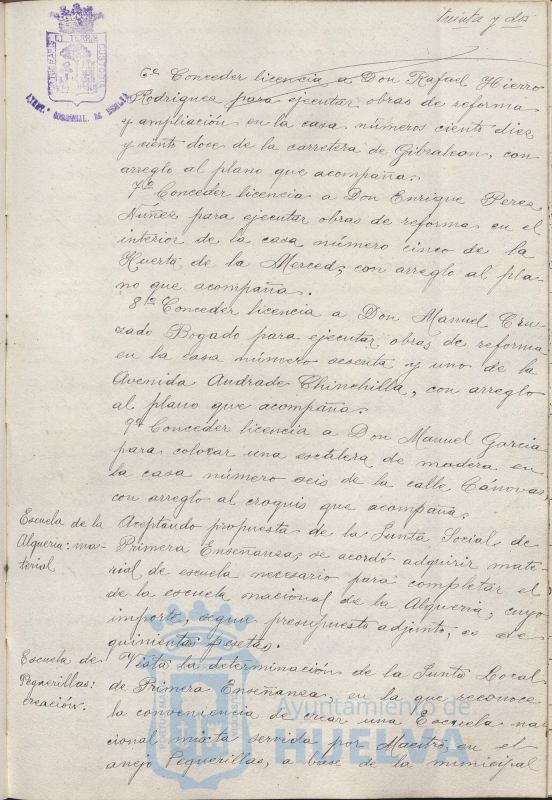 treinta y dos
6º Conceder licencia a Don Rafael Hierro
Rodriguez para ejecutar obras de reforma
y ampliación en la casa números ciento diez
y ciento doce de la carretera de Gibraleon, con
arreglo al plano que acompaña.
7º Conceder licencia a Don Enrique Perez
Nuñez para ejecutar obras de reforma en el
interior de la casa número cinco de la
Huerta de la Merced, con arreglo al pla-
no que acompaña.
8º Conceder licencia a Don Manuel Cru-
zado Bogado para ejecutar obras de reforma
en la casa número sesenta y uno de la
Avenida Andrade Chinchilla, con arreglo
al plano que acompaña.
9º Conceder licencia a Don Manuel Garcia
para colocar una escalera de madera en
la casa número seis de la calle Cánovas,
con arreglo al croquis que acompaña.
Escuela de la
Alqueria: ma-
terial
Aceptando propuesta de la Junta Social de
Primera Enseñanza, se acordó adquirir mate-
rial de escuela necesario para completar el
de la escuela nacional de la Alqueria, cuyo
importe, segun presupuesto adjunto, es de
quinientas pesetas.
Escuela de
Peguerillas:
creación.
Vista la determinación de la Junta Local
de Primera Enseñanza, en la que reconoce
la conveniencia de crear una Escuela na-
cional mixta servida por Maestro, en el
anejo Peguerillas, a base de la municipal
Ayuntamiento de
HUELVA